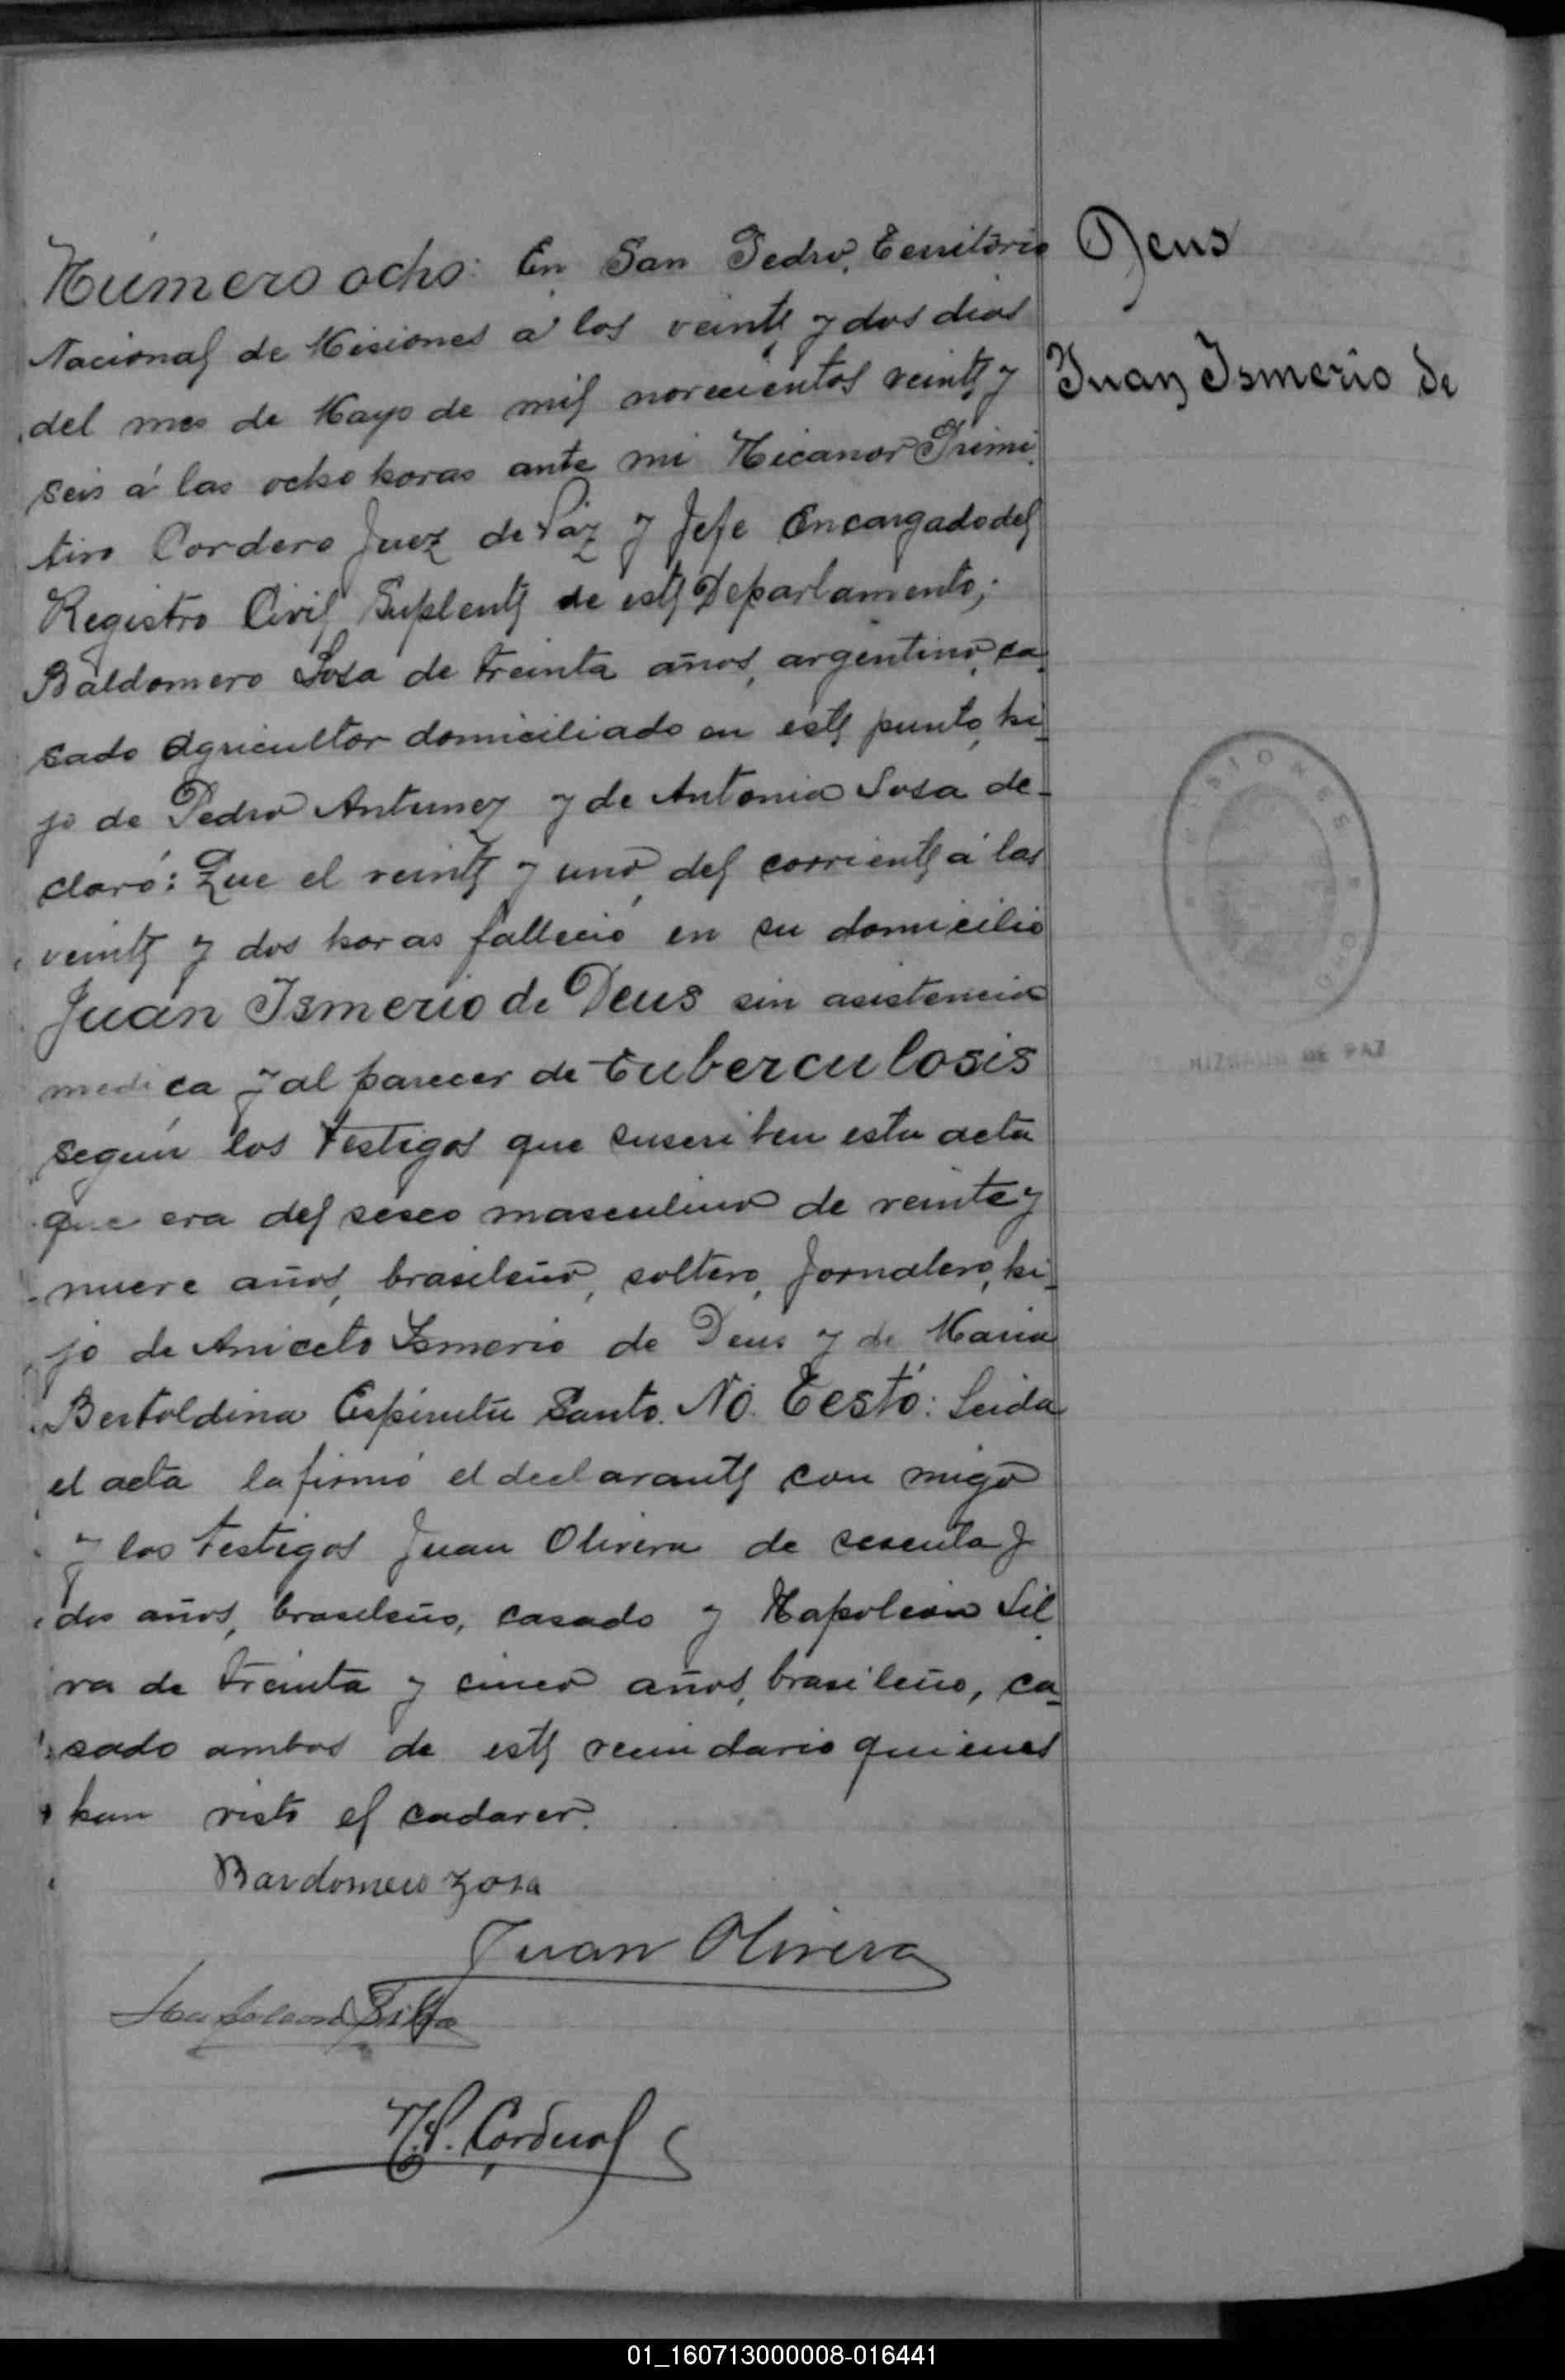 Número ocho: En San Pedro, Territorio
Nacional de Misiones á los veinte y dos dias
del mes de Mayo de mil novecientos veinte y
seis á las ocho horas ante mi Nicanor Primi
tivo Cordero Juez de Paz y Jefe Encargado del
Registro Civil Suplente de este Departamento;
Baldomero Sosa de treinta años, argentino, ca
sado agricultor domiciliado en este punto, hi
jo de Pedro Antunez y de Antonia Sosa de-
claró: Que el veinte y uno del corriente á las
veinte y dos horas falleció en su domicilio
Juan Ismerio de Deus sin asistencia
medica y al parecer de tuberculosis
según los testigos que suscriben esta acta
que era del secso masculino de veinte y
nueve años, brasileño, soltero, jornalero, hi-
jo de Aniceto Ismerio de Deus y de Maria
Bertoldina Espíritu Santo. No. Testó: Leida
el acta la firmó el declarante con migo
y los testigos Juan Olivera de sesenta y
dos años, brasileño, casado y Napoleón Sil
va de treinta y cinco años, brasileño, ca-
sado ambos de este vecindario quienes
han visto el cadaver.
Bardomero Zosa
Juan Olivera
Napoleon Silva
N.P. Cordero
Deus
Juan Ismerio de
MISIONES
DE PAZ
01_160713000008-016441